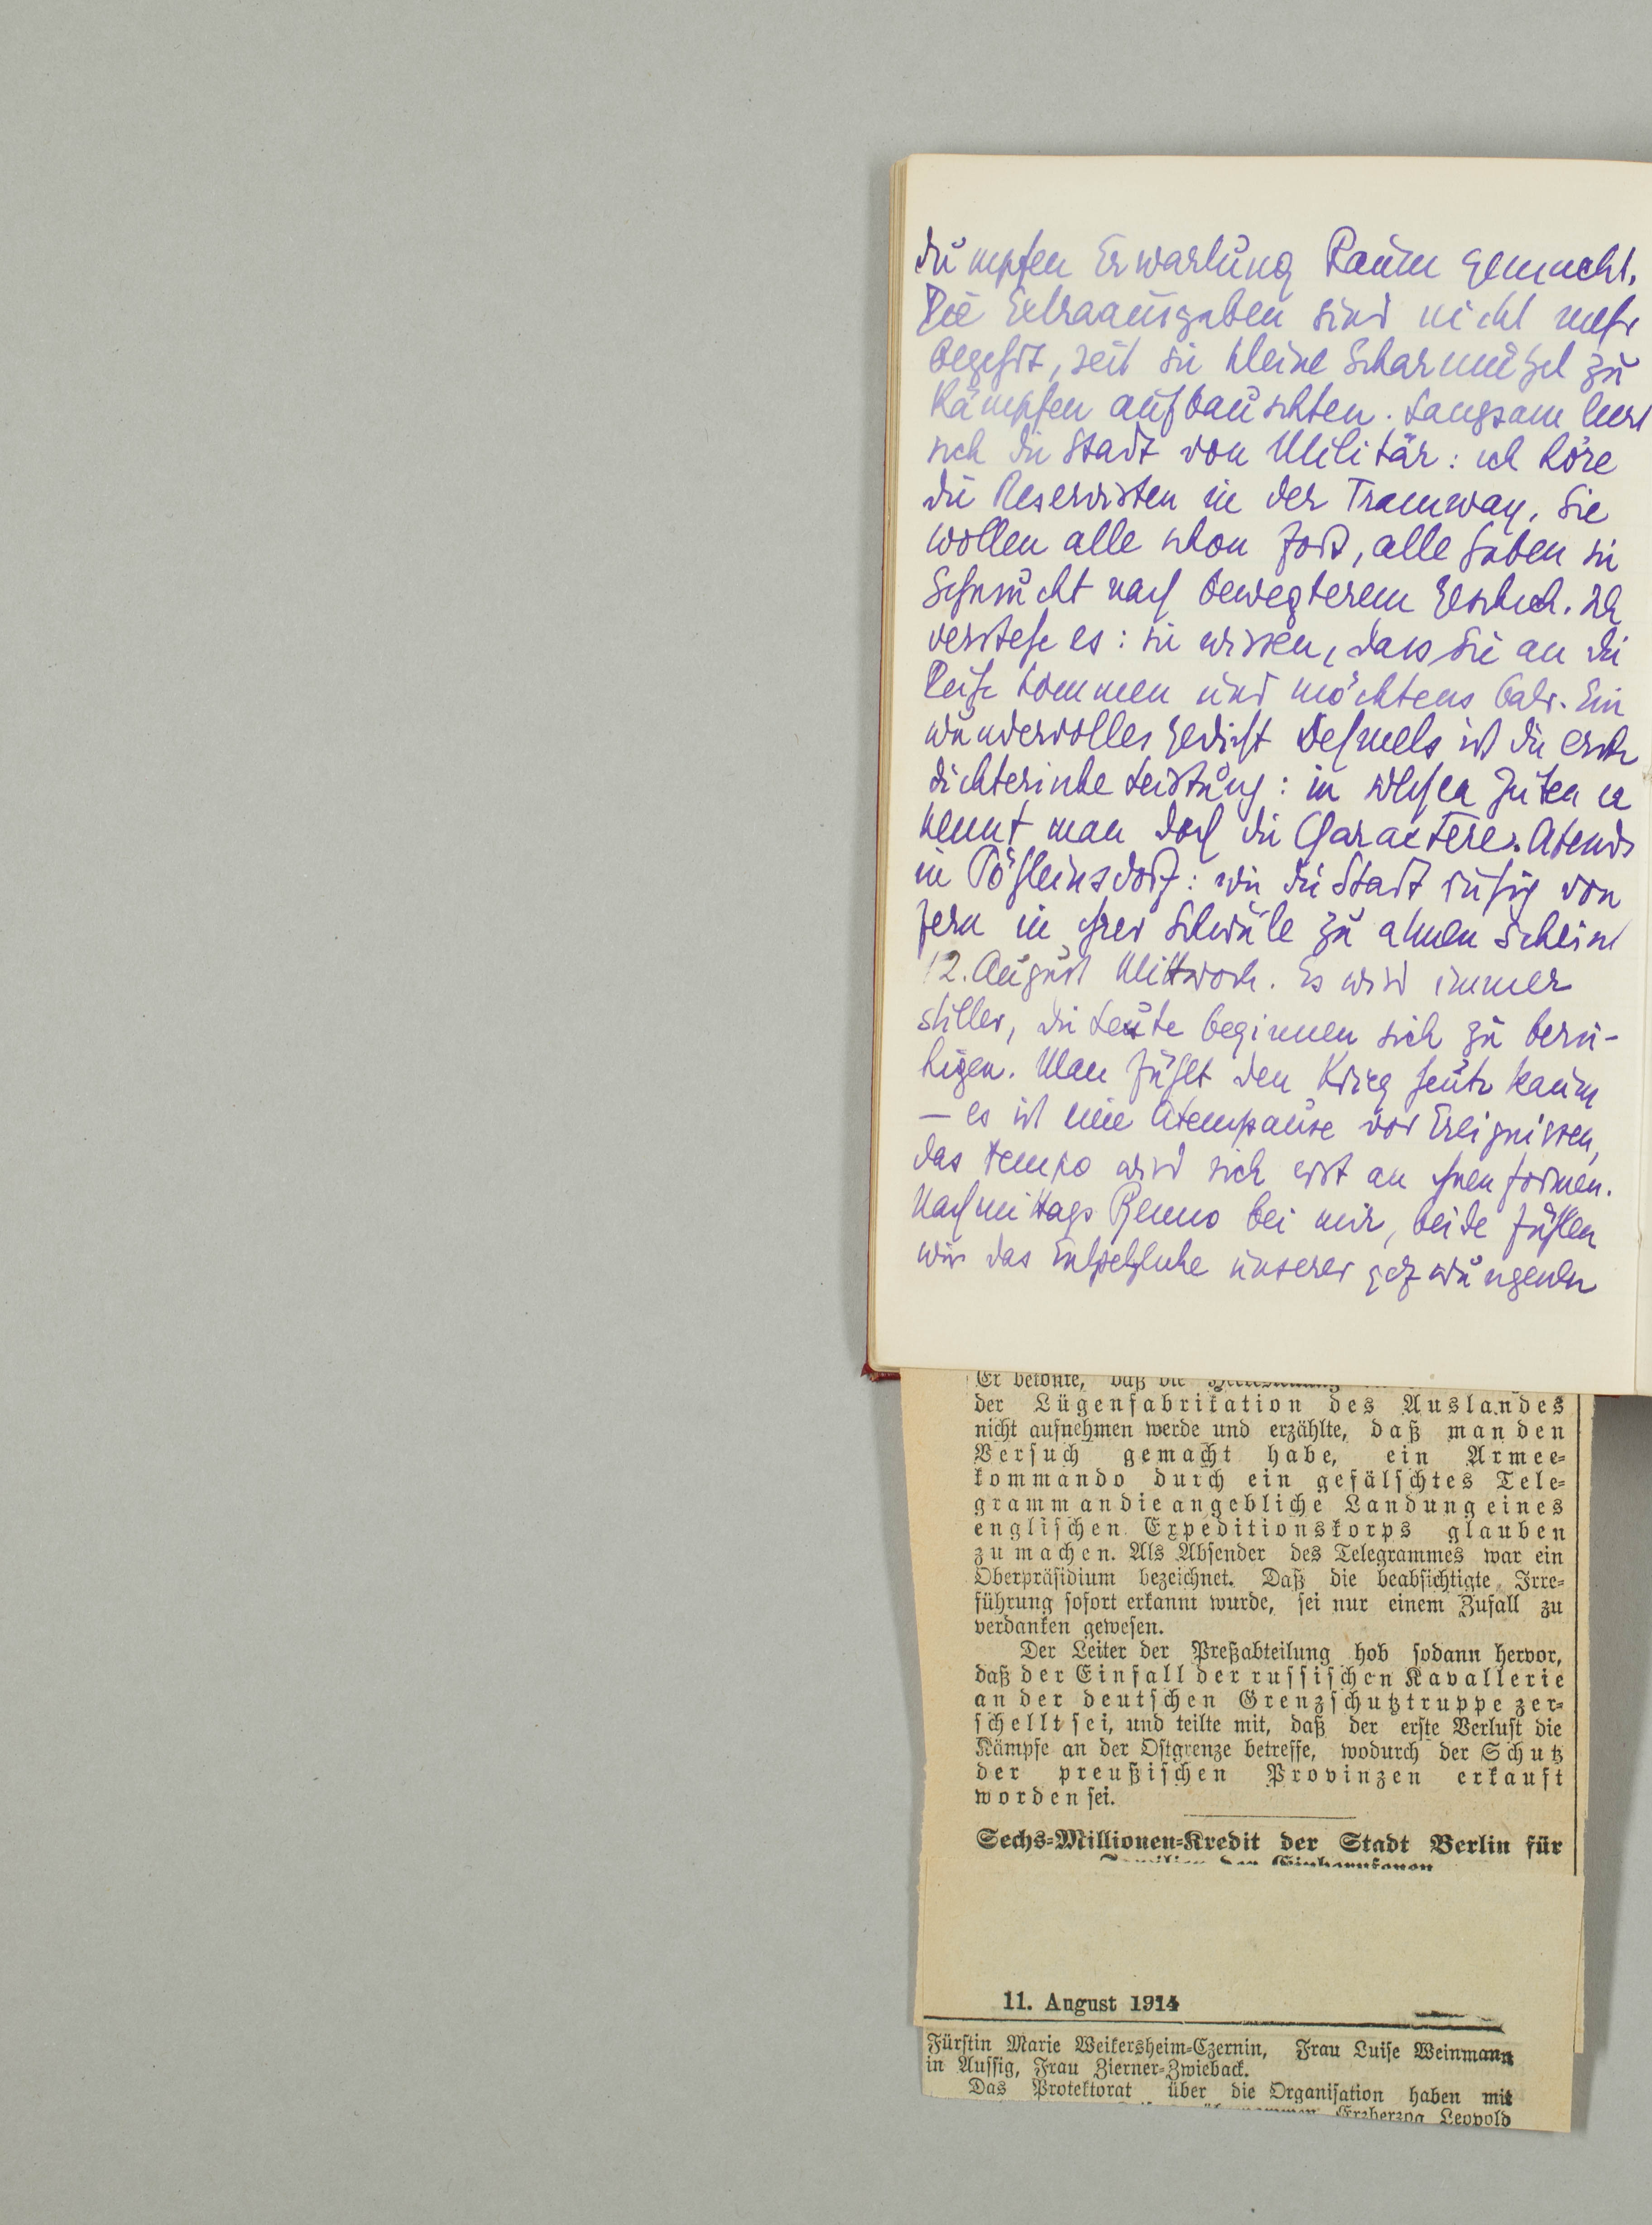 dumpfen Erwartung Raum gemacht.
Die Extraausgaben sind nicht mehr
begehrt, seit sie kleine Scharmützel zu
Kämpfen aufbauschten. Langsam leert
sich die Stadt von Militär: ich höre
die Reservisten in der Tramway. Sie
wollen alle schon fort, alle haben sie
Sehnsucht nach bewegterem Geschick. Ich
verstehe es: sie wissen, dass sie an die
Reihe kommen und möchtens bald. Ein
wundervolles Gedicht Dehmels ist die erste
dichterische Leistung: in solchen Zeiten er
kennt man doch die Charactere. Abends
in Pötzleinsdorf: wie die Stadt ruhig von
fern in ihrer Schwüle zu atmen scheint
12. August Mittwoch. Es wird immer
stiller, die Leute beginnen sich zu beru-
higen. Man fühlt den Krieg heute kaum
– es ist eine Atempause vor Ereignissen,
das Tempo wird sich erst an ihnen formen.
Nachmittags Benno bei mir, beide fühlen
wir das Entsetzliche unserer gezwungenen
Er betonte, daß die
der Lügenfabrikation des Auslandes
nicht aufnehmen werde und erzählte, daß man den
Versuch gemacht habe, ein Armee-
kommando durch ein gefälschtes Tele-
gramm an die angebliche Landung eines
englischen Expeditionskorps glauben
zu machen. Als Absender des Telegrammes war ein
Oberpräsidium bezeichnet. Daß die beabsichtigte Irre-
führung sofort erkannt wurde, sei nur einem Zufall zu
verdanken gewesen.
Der Leiter der Preßabteilung hob sodann hervor,
daß der Einfall der russischen Kavallerie
an der deutschen Grenzschutztruppe zer-
schellt sei, und teilte mit, daß der erste Verlust die
Kämpfe an der Ostgrenze betreffe, wodurch der Schutz
der preußischen Provinzen erkauft
worden sei.
Sechs-Millionen-Kredit der Stadt Berlin für
Familien der Einberufenen
11. August 1914
Fürstin Marie Weikersheim-Czernin, Frau Luise Weinmann
in Aussig, Frau Zierner-Zwieback.
Das Protektorat über die Organisation haben mit
Erzherzog Leopold